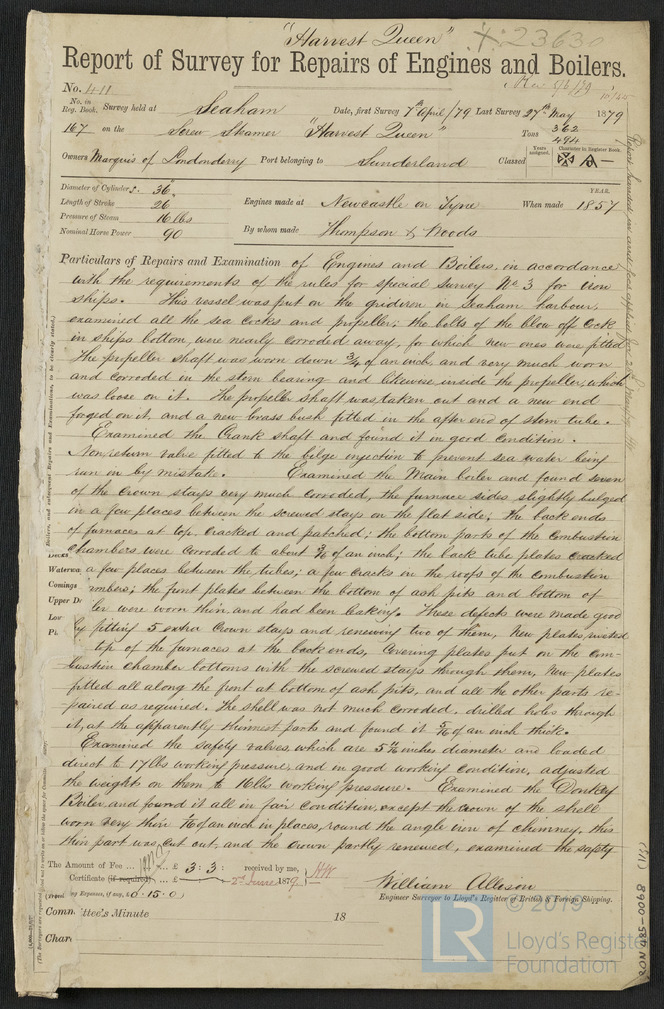 "Harvest Queen"
X. 23630
Report of Survey for Repairs of Engines and Boilers.
No. 411
No. in Reg. Book. Survey held at Seaham Date, first Survey 7th April /79 Last Survey 27th May 1879
167 on the Screw Steamer "Harvest Queen" Tons 362
494
Owners Marquis of Londonderry Port belonging to Sunderland Classed
Years assigned.
Character in Register Book.
A —
Diameter of Cylinders. 36"
Length of Stroke 26
Pressure of Steam 16 lbs
Nominal Horse Power 90
Engines made at Newcastle on Tyne When made 1857
YEAR.
By whom made Thompson & Woods
Particulars of Repairs and Examination of Engines and Boilers, in accordance
with the requirements of the rules for special survey No. 3 for iron
ships. This vessel was put on the gridiron in Seaham harbour,
examined all the sea cocks and propeller; the bolts of the blow off cock
in ships bottom, were nearly corroded away, for which new ones were fitted
The propeller shaft was worn down 3/4 of an inch and very much worn
and corroded in the stern bearing and likewise inside the propeller, which
was loose on it. The propeller shaft was taken out and a new end
forged on it, and a new brass bush fitted in the after end of stern tube.
Examined the Crank shaft and found it in good condition.
Non return valve fitted to the bilge injection to prevent sea water being
run in by mistake. Examined the Main boiler and found seven
of the crown stays very much corroded, the furnace sides slightly bulged
in a few places between the screwed stays on the flat side; the back ends
of furnaces at top, cracked and patched; the bottom parts of the combustion
chambers were corroded to about of an inch; the back tube plates cracked
a few places between the tubes; a few cracks in the roofs of the combustion
mbers; the front plates between the bottom of ash pits and bottom of
ler were worn thin, and had been leaking. These defects were made good
by fitting 5 extra crown stays and renewing two of them, New plates, riveted
top of the furnaces at the back ends, covering plates put on the com-
bustion chamber bottoms with the screwed stays through them, new plates
fitted all along the front at bottom of ash pits, and all the other parts re-
paired as required. The shell was not much corroded, drilled holes through
it, at the apparently thinnest parts and found it 5/16 of an inch thick.
Examined the safety valves, which are inches diameter and loaded
direct to 17 lbs working pressure, and in good working condition, adjusted
the weights on them to 16 lbs working pressure. Examined the Donkey
Boiler, and found it all in fair condition, except the crown of the shell
worn very thin of an inch in places, round the angle iron of chimney, this
thin part was cut out, and the crown partly renewed, examined the safety
Waterwa
Comings
Upper De
Low
Pl
The Amount of Fee ... £ 3 : 3 : received by me,
Certificate (if required) ... £ : : 2nd June 1879
ing Expenses, if any, £ 0 . 15 . 0
William Allison
Engineer Surveyor to Lloyd's Register of British & Foreign Shipping.
Comm ttee's Minute 18
Chara
NOR 485-0068
LR
© 2019
Lloyd's Register
Foundation